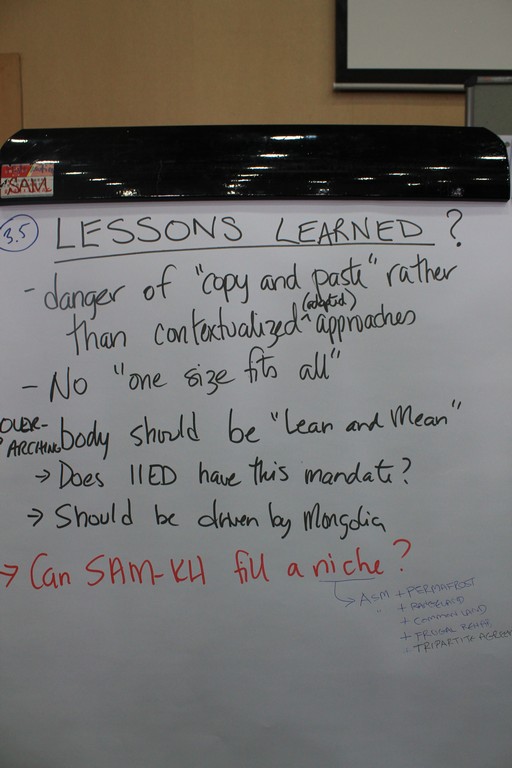 SAM
3.5 LESSONS LEARNED?
- danger of "copy and paste" rather
than contextualized ^(adapted) approaches
- No "one size fits all"
OVER-ARCHING body should be "Lean and Mean"
→ Does IIED have this mandate?
→ Should be driven by Mongolia
→ Can SAM-KH fill a niche?
→ ASM + PERMAFROST
" + RANGELAND
+ COMMON LAND
+
+ TRIPARTITE AGREE